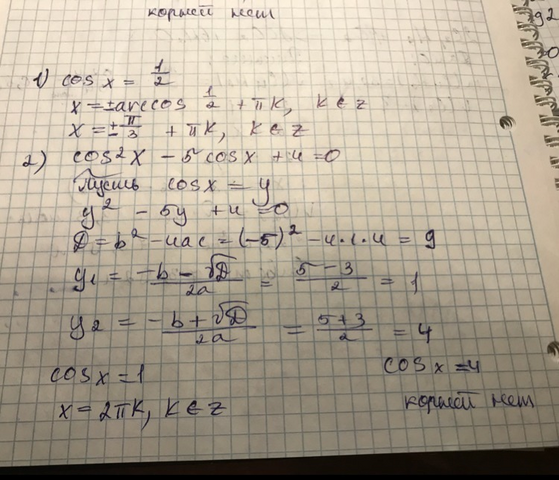 корней нет
92
0
1) cos x = 1/2
x = ±arccos 1/2 + πk, k ∈ z
x = ± π/3 + πk, k ∈ z
2) cos²x - 5 cosx + 4 = 0
Пусть cosx = y
y² - 5y + 4 = 0
D = b² - 4ac = (-5)² - 4·1·4 = 9
y₁ = (-b - √D)/2a = (5 - 3)/2 = 1
y₂ = (-b + √D)/2a = (5 + 3)/2 = 4
cosx = 1 cosx = 4
x = 2πk, k ∈ z корней нет